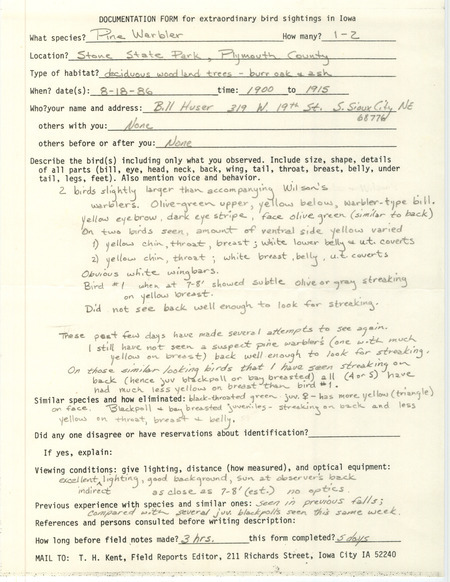 DOCUMENTATION FORM for extraordinary bird sightings in Iowa
What species? Pine Warbler How many? 1-2
Location? Stone State Park, Plymouth County
Type of habitat? deciduous woodland trees - burr oak & ash
When? date(s): 8-18-86 time: 1900 to 1915
Who?your name and address: Bill Huser 319 W. 19th St. S. Sioux City NE
68776
others with you: None
others before or after you: None
Describe the bird(s) including only what you observed. Include size, shape, details
of all parts (bill, eye, head, neck, back, wing, tail, throat, breast, belly, under
tail, legs, feet). Also mention voice and behavior.
2 birds slightly larger than accompanying Wilson's
warblers. Olive-green upper, yellow below, warbler-type bill.
Yellow eyebrow, dark eye stripe, face olive green (similar to back)
On two birds seen, amount of ventral side yellow varied
1) yellow chin, throat, breast; white lower belly & u.t. coverts
2) yellow chin, throat; white breast, belly, u.t. coverts
Obvious white wingbars.
Bird #1 when at 7-8' showed subtle olive or gray streaking
on yellow breast.
Did not see back well enough to look for streaking.
These past few days have made several attempts to see again.
I still have not seen a suspect pine warblers (one with much
yellow on breast) back well enough to look for streaking.
On those similar looking birds that I have seen streaking on
back (hence juv blackpoll or bay breasted) all (4 or 5) have
had much less yellow on breast than bird #1.
Similar species and how eliminated: black-throated green juv. ♀ - has more yellow (triangle)
on face. Blackpoll & bay breasted juveniles - streaking on back and less
yellow on throat, breast & belly.
Did any one disagree or have reservations about identification?
If yes, explain:
Viewing conditions: give lighting, distance (how measured), and optical equipment:
excellent, indirect lighting, good background, sun at observer's back
as close as 7-8' (est.) no optics.
Previous experience with species and similar ones: seen in previous falls;
compared with several juv. blackpolls seen this same week.
References and persons consulted before writing description:
How long before field notes made? 3 hrs. this form completed? 5 days
MAIL TO: T. H. Kent, Field Reports Editor, 211 Richards Street, Iowa City IA 52240